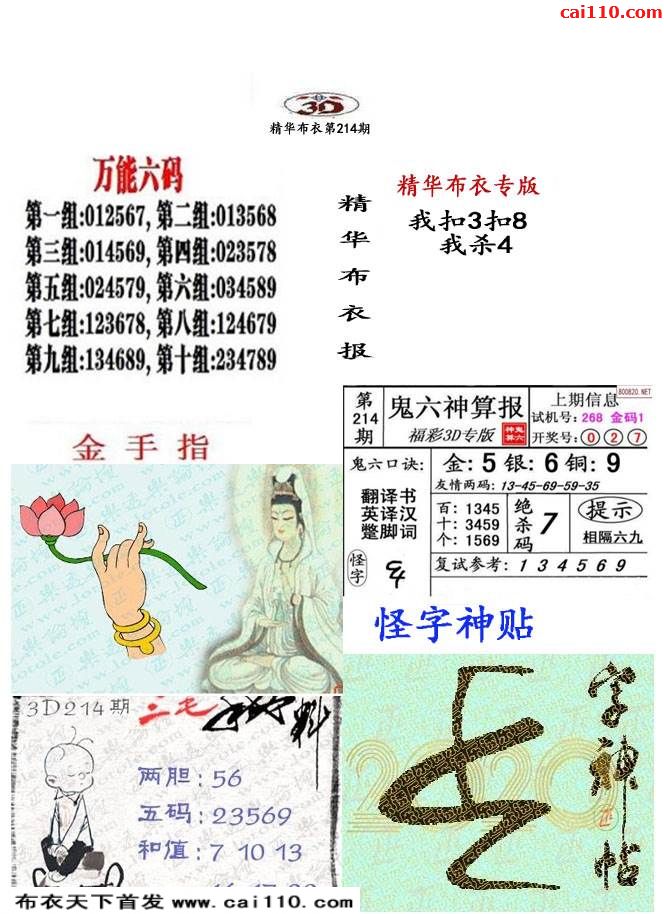 cai110.com
3D
精华布衣第214期
万能六码
第一组:012567,第二组:013568
第三组:014569,第四组:023578
第五组:024579,第六组:034589
第七组:123678,第八组:124679
第九组:134689,第十组:234789
精华布衣报
精华布衣专版
我扣3扣8
我杀4
金手指
800820.NET
第214期
鬼六神算报
福彩3D专版
上期信息
试机号: 268 金码1
开奖号: 0 2 7
鬼六口诀:
金: 5 银: 6 铜: 9
友情两码: 13-45-69-59-35
翻译书
英译汉
蹩脚词
百: 1345
十: 3459
个: 1569
绝杀码
7
提示
相隔六九
怪字
复试参考: 1 3 4 5 6 9
怪字神贴
字神帖
2020
3D214期
三毛
料
两胆: 56
五码: 23569
和值: 7 10 13
布衣天下首发 www.cai110.com